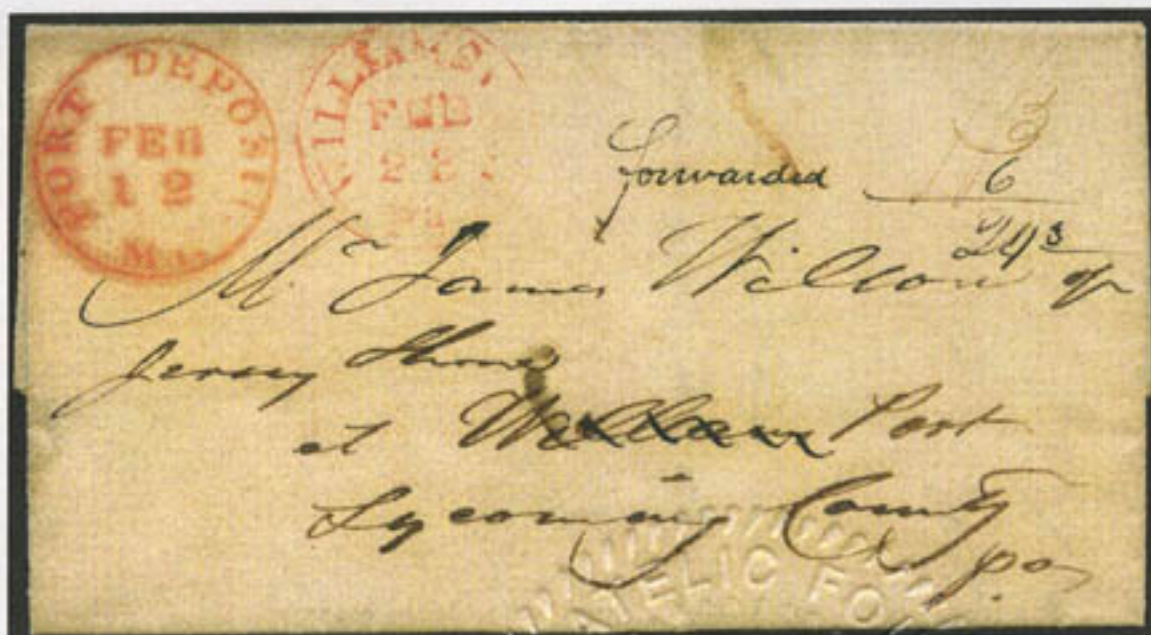 PORT DEPOSIT
FEB
12
Md.
WILLIAMS
FEB
22
Pa
forwarded
6
24 3
Mr James Wilson of
Jersey Shore
at Port
Lycoming County
pa
ATELIC FO